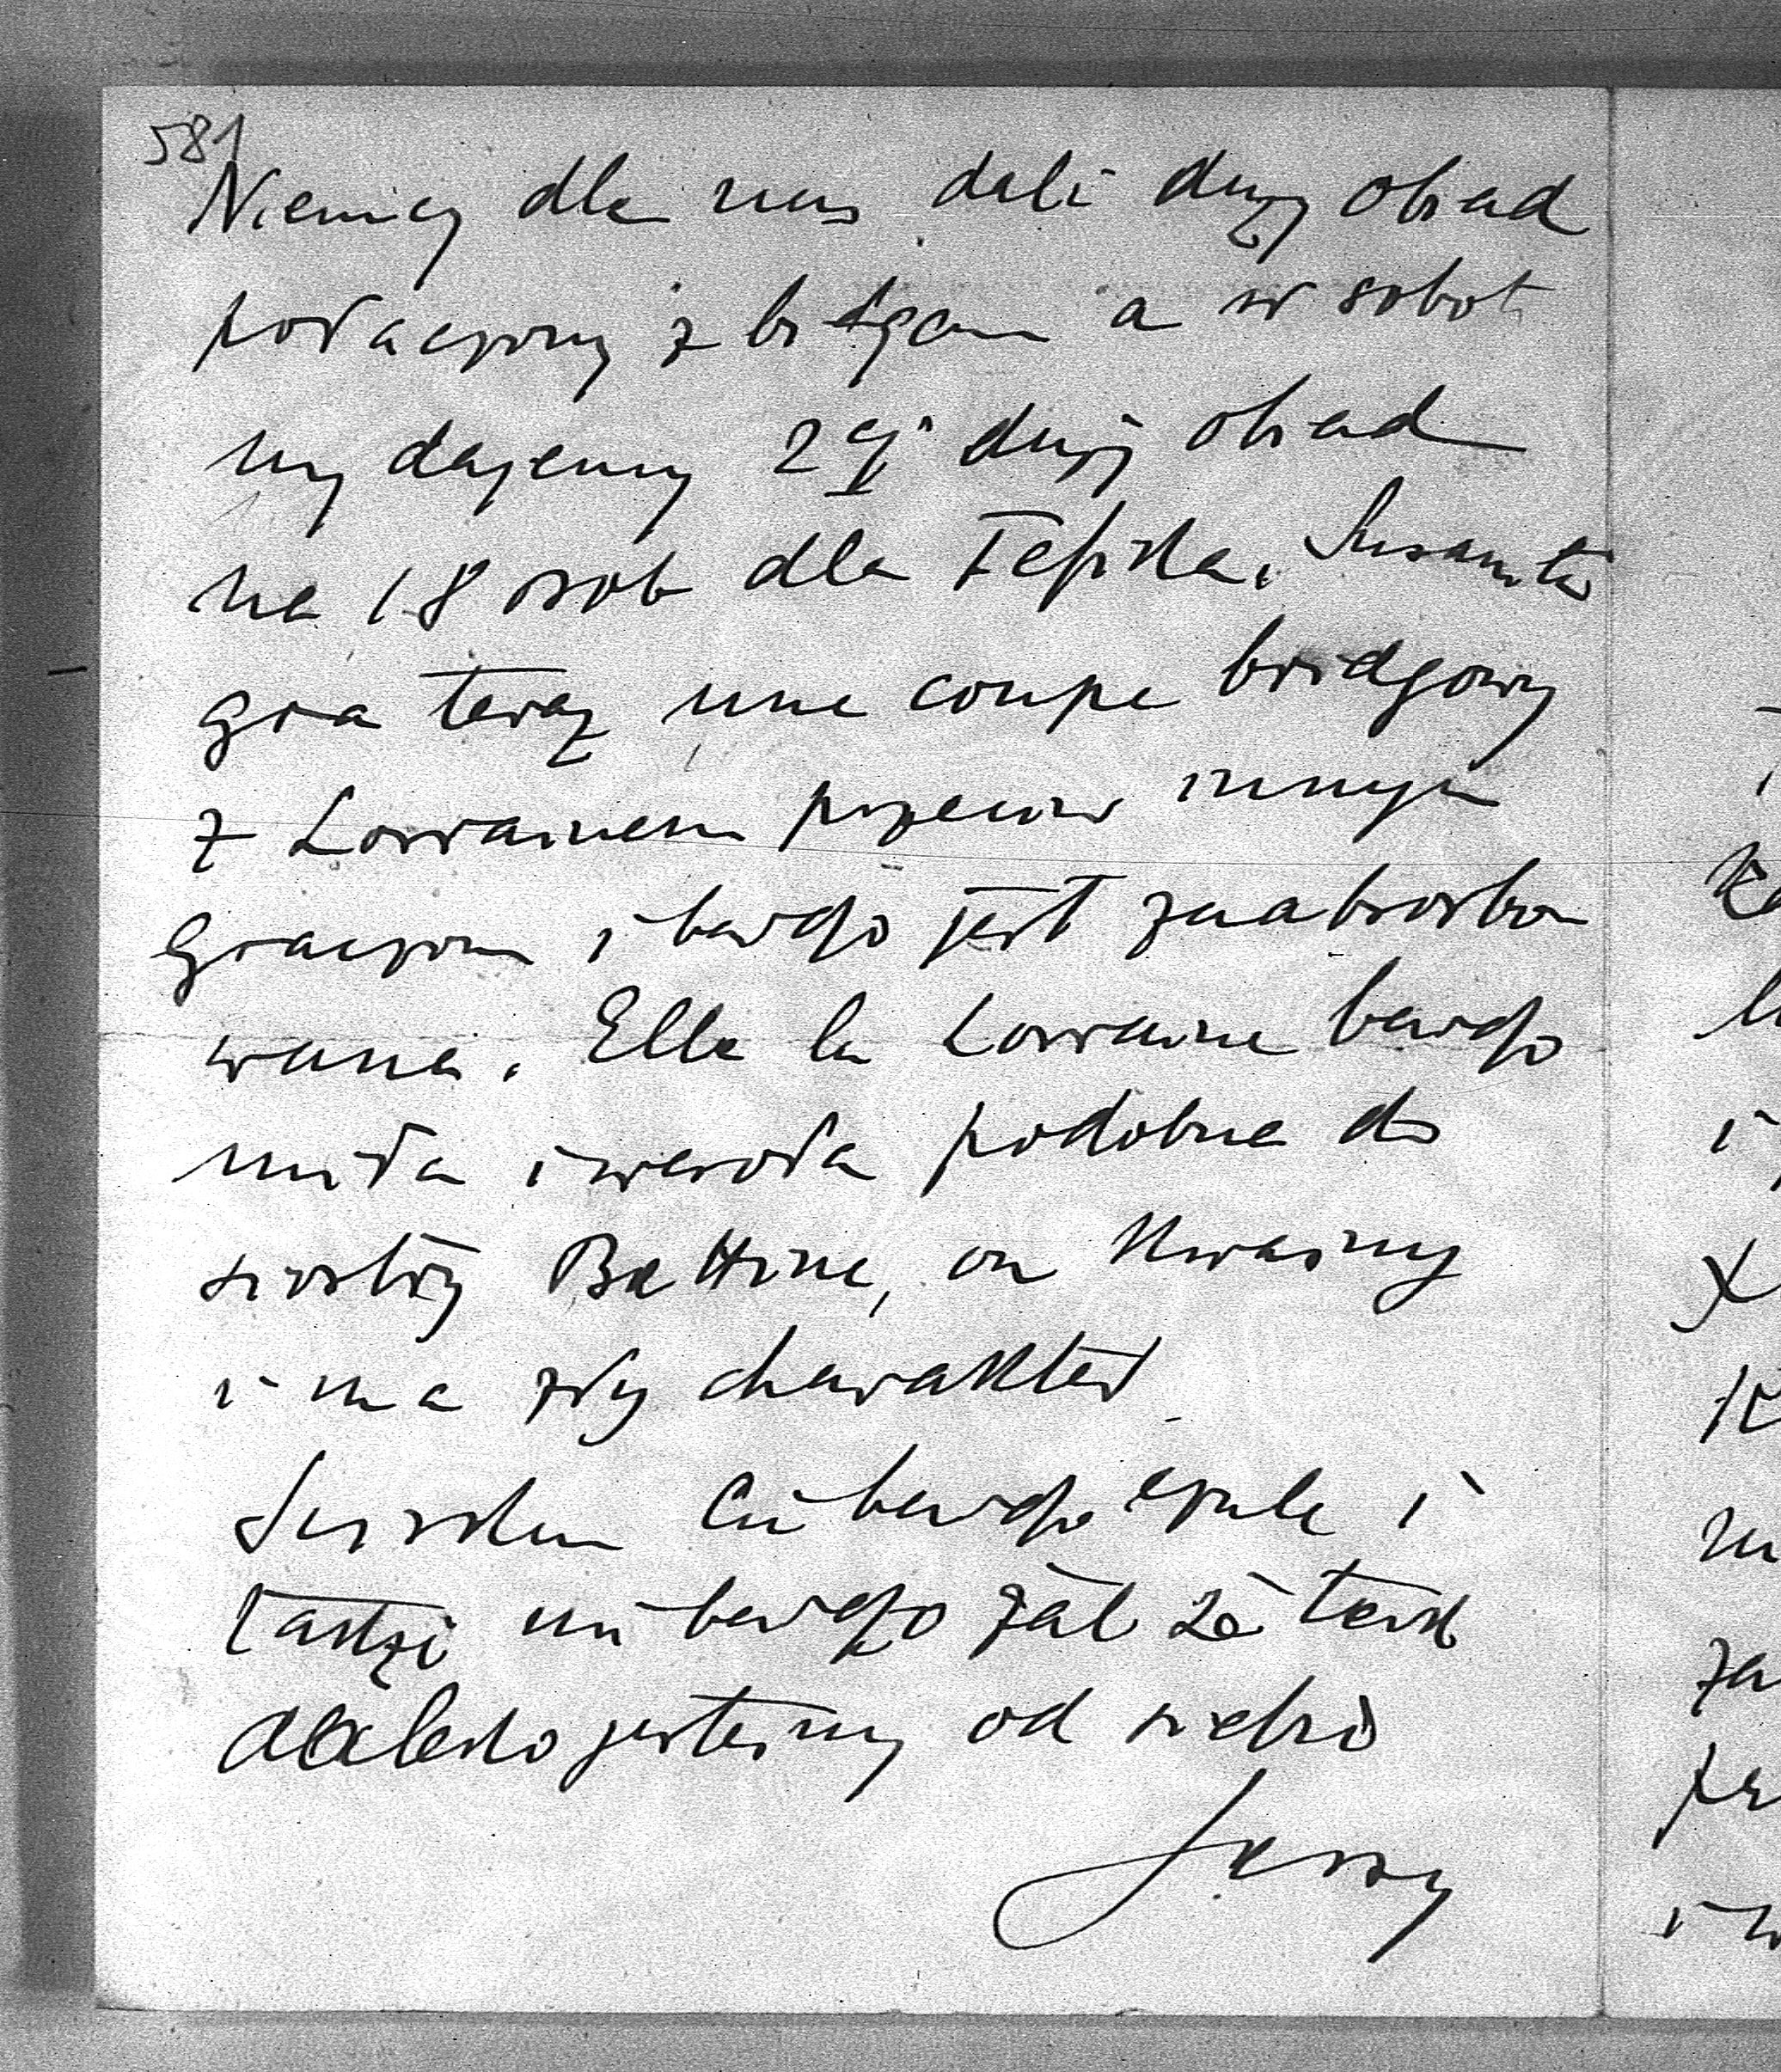 581
Niemcy dla nas dali duży obiad
połączony z bridgem a w sobot
my dajemy 2gi duży obiad
na 18 osob dla Tefika. Susanita
gra teraz une coupe bridgowy
z Lorrainem przeciw innym
graczom i bardzo jest zaabsorbo
wana. Elle la Lorraine bardzo
miła i wesoła podobna do
siostry Bettine, on kwaśny
i ma zły charakter
Ściskam Cię bardzo czule i
także mi bardzo żal że tak
daleko jesteśmy od siebie